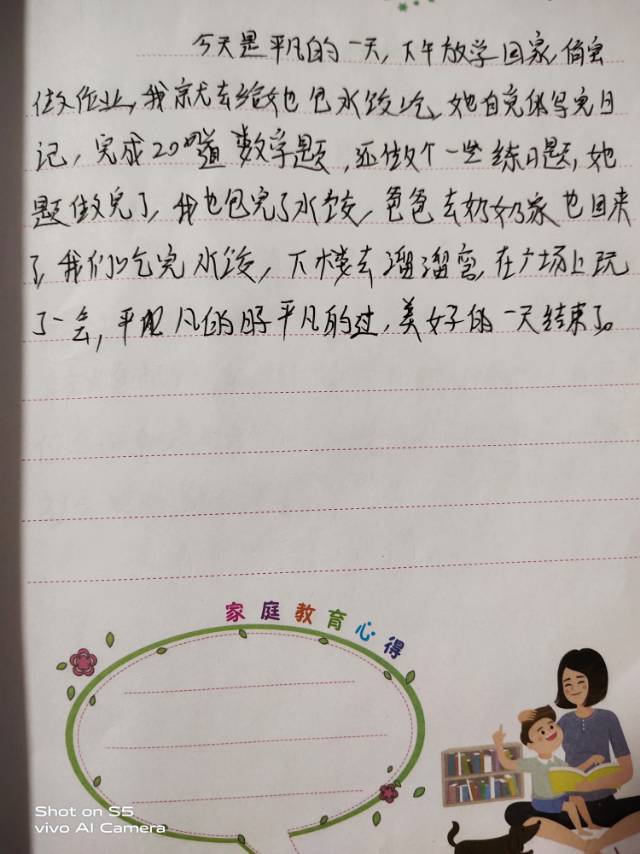 今天是平凡的一天,下午放学回家,
做作业,我就去给她包水饺吃,她自写完日
记,完成20道数学题,还做个一些练习题,她
题做完了,我也包完了水饺,爸爸去奶奶家也回来
了,我们吃完水饺,下楼去溜溜弯,在广场上玩
了一会,平凡的平凡的过,美好的一天结束了。
家庭教育心得
Shot on S5
vivo AI Camera